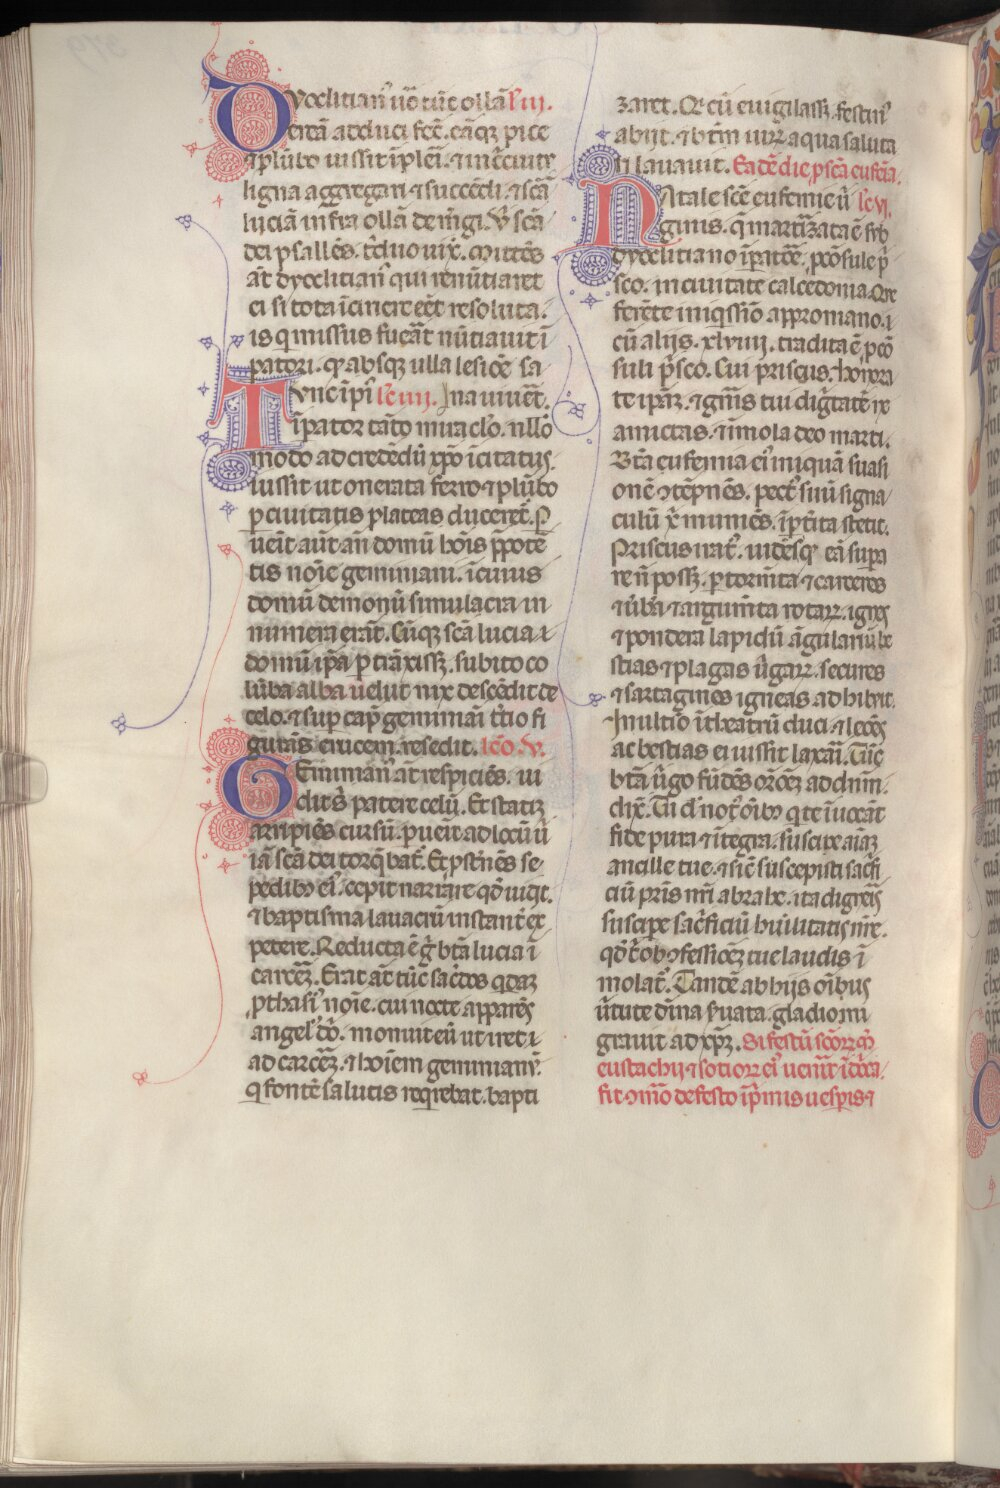 Dyoclitian᷒ uō tūc ollā lc̄ iij.
ereā adduci fec̄. eāqꝫ pice
⁊ plūbo iussit īpleri. ⁊ in circuitu
ligna aggregari ⁊ succēdi. ⁊ scā
luciā infra ollā demigi. scā
dei psallēs. tduo uix̄. Mittēs
at̄ dyoclitian᷒ qui renūtiaret
ei si tota īcinere eēt resoluta.
is q missus fuēat nūtiauit ī
patori. qꝫ absqꝫ ulla lesiōe sa
Tunc īpr̄ lc̄ iiij. na uiuēt.
īpator tāto miraclo. nllo
modo ad credēdū xp̄o īcitatus.
iussit ut onerata ferro ⁊ plūbo
p ciuitatis plateas duceret. P
uēit aut an̄ domū hōis p̄potē
tis noīe geminiani. ī cuius
domū demoniū simulacra in
numera erāt. Cūqꝫ scā lucia ⁊
domū ip̄a p trāxissꝫ. subito co
lūba alba uelut nix descēdit de
celo. ⁊ sup cap̄ geminiāi ttio fi
gurās crucem. resedit. lc̄o. v.
Geminian᷒ at̄ respiciēs. ui
dit s̄ patere celū. Et statiꝫ
arripiēs cursū. puēit ad locū ū
iā scā dei torqbat᷒. Et pstnēs se
pedibꝫ ei᷒. cepit narrare qd̄ uidit.
⁊ baptisma lauacrū instant̄ ex
petere. Reducta ē g̊ btā lucia ī
carceꝫ. Erat at̄ tūc sac̄dos qdaꝫ
pthasi᷒ noīe. cui nocte apparēs
angel᷒ dn̄i. monuit eū ut iret ⁊
ad carceꝫ. ⁊ hoīem geminianū.
q fontē salutis reqrebat. bapti
zaret. Qꝫ cū euigilassꝫ. festin᷒
abijt. ⁊ btm̄ uirꝫ aqua saluta
ri lauauit. Eadē die, p scā eufēia.
Natale scē eufemie ū lc̄ vj.
ginis. q martizata ē sub
dyoclitiano īpatoē. pcōsule p̄
sco. in ciuitate calcedonia. Que
ferēte iniqssio appromano. ⁊
cū alijs. xlviiij. tradita ē pcō
suli p̄sco. Cui priscus. honora
te ipaꝫ. ⁊ gn̄is tui dignitatē ne
amictas. ⁊ īmola deo marti.
Btā eufemia ei᷒ iniquā suasi
onē cōtēpnēs. pect᷒ suū signa
culū x̄ muniēs. īptita stetit.
Priscus irat᷒. uidēsqꝫ eā supa
re n̄ possꝫ. p tormta ⁊ carceres
⁊ ubera ⁊ argumta rotarꝫ. ignes
⁊ pondera lapidū āgulariū be
stias ⁊ plagas ūgarꝫ. secures
⁊ sartagines igneas. adhibuit.
Inultio ī theatrū duci ⁊ lcōes
ac bestias ei iussit laxari. Tūc
btā ūgo fūdēs orōeꝫ ad dn̄m.
dix̄. Tu d᷒ not᷒ oībꝫ q te īuocāt
fide pura ⁊ ītegra. suscipe aiaꝫ
ancille tue. ⁊ sic̄ suscepisti sacrifi
ciū pris nr̄i abrahe. ita digneris
suscipe sacrificiū hūilitatis nr̄e.
qd̄ t̄ ob cōfessioeꝫ tue laudis ī
molat᷒. Tandē ab hijs oībus
ūtute dīna suata. gladio mi
grauit ad xp̄ꝫ. Si festū scōrꝫ m̄
eustachij ⁊ sociorꝫ ei᷒ uenit ī dn̄ica.
fit cōm̄o de festo ī primis uespis ⁊